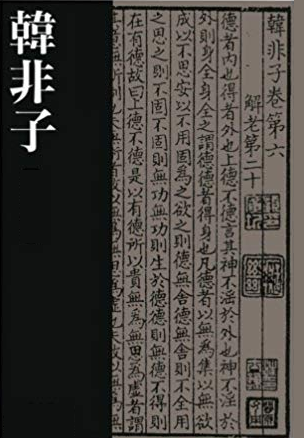 韓非子
韓非子卷第六
解老第二十
德者內也得者外也上德不德言其神不淫於外也神不淫於
外則身全身全之謂德德者得身也凡德者以無爲集以無欲
成以不思安以不用固爲之欲之則德無舍德無舍則不全用
之思之則不固不固則無功無功則生於德德則無德不得則
在有德故曰上德不德是以有德所以貴無爲無思爲虛者謂